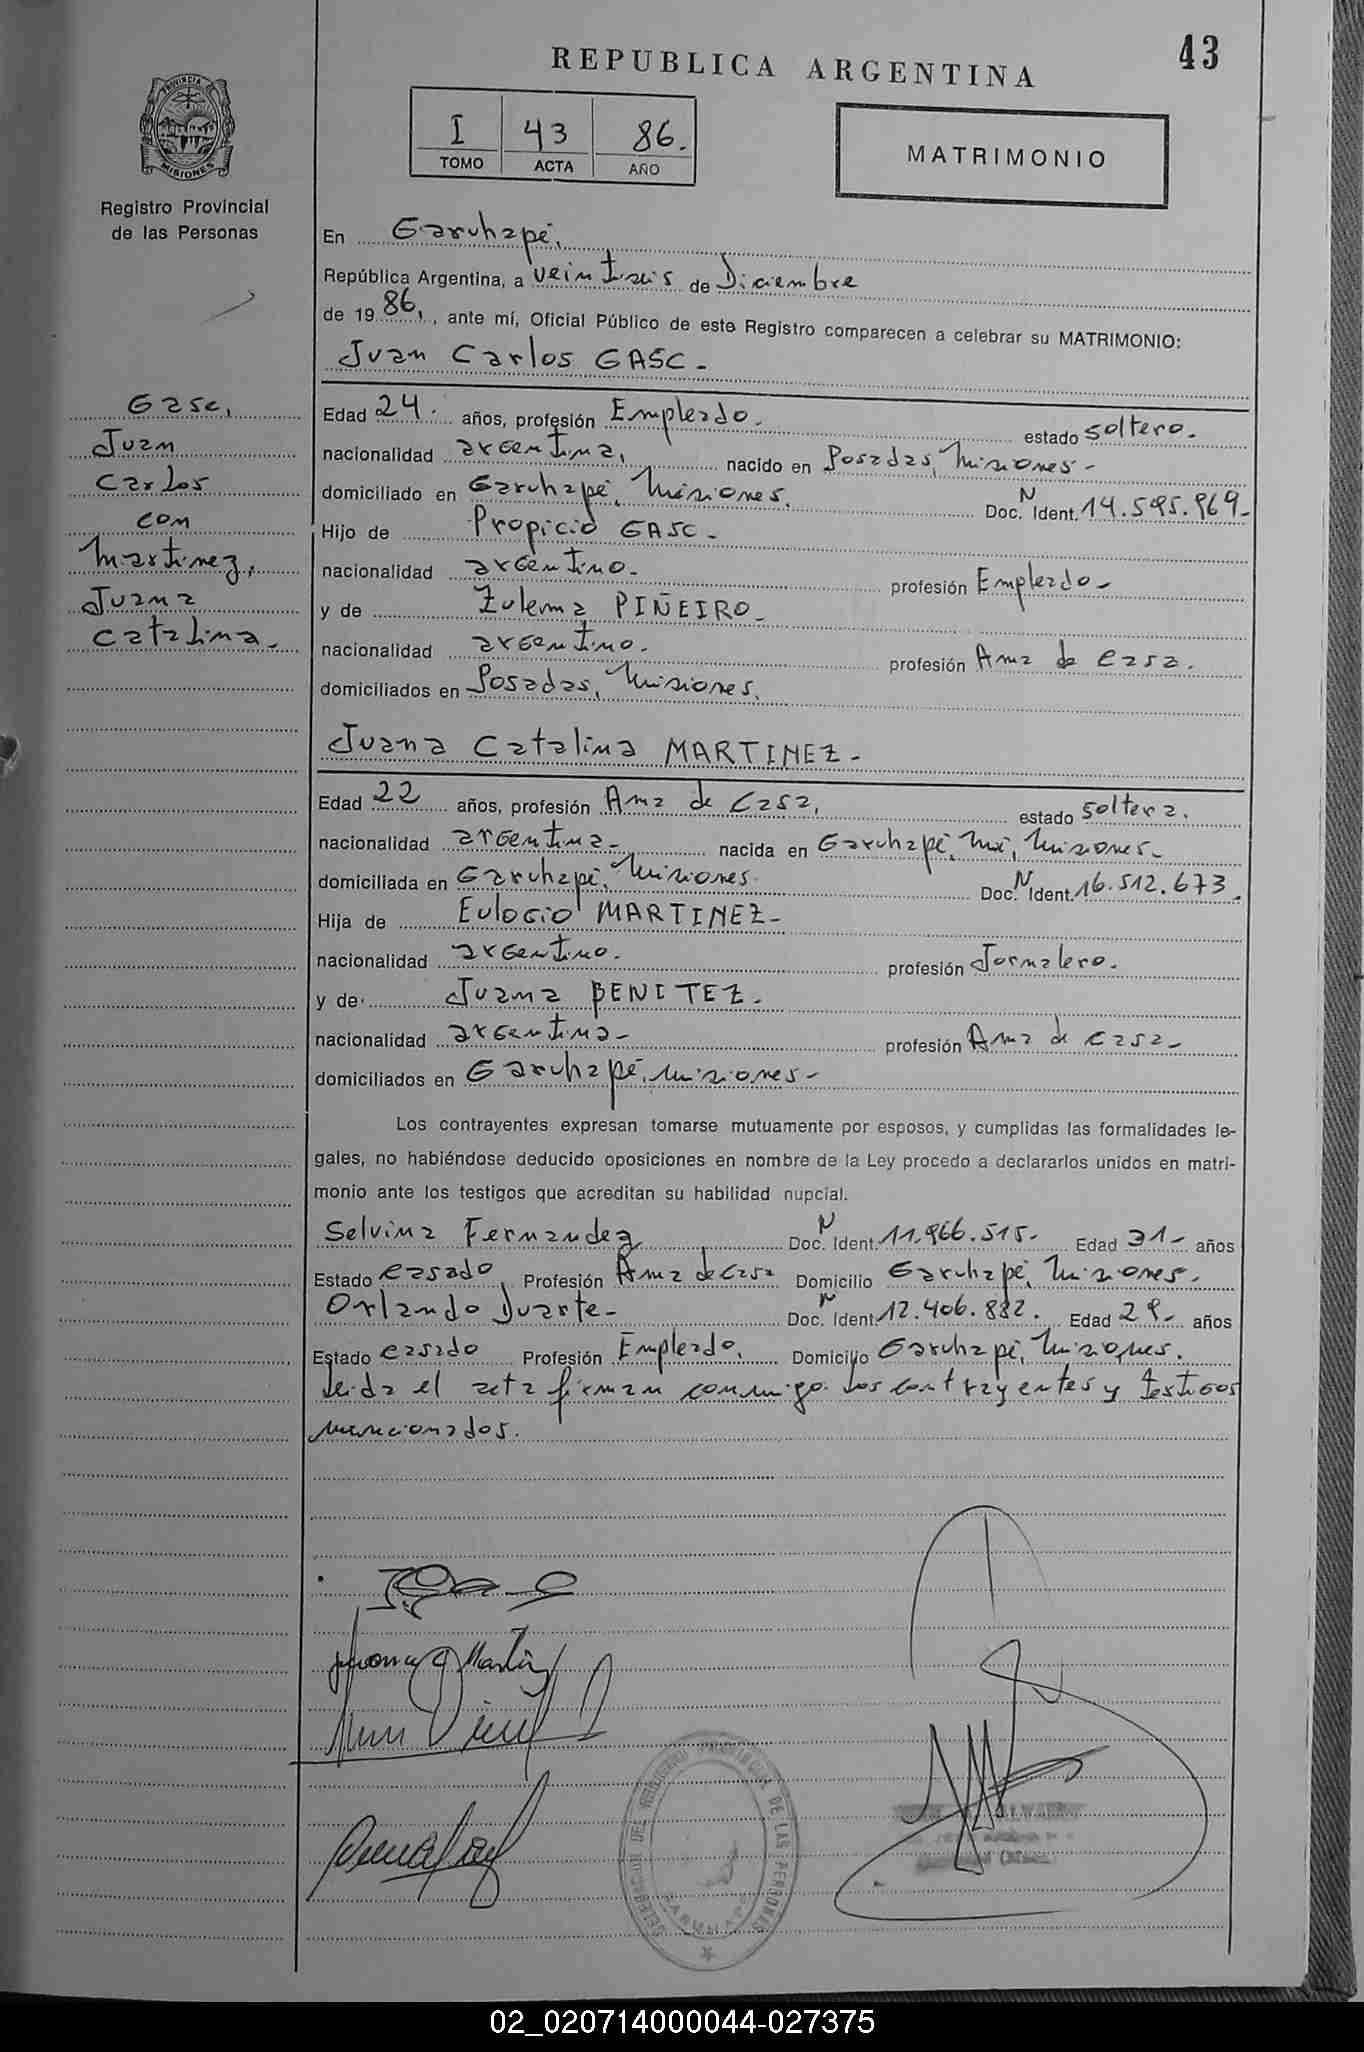 43
REPUBLICA ARGENTINA
I 43 86.
TOMO ACTA AÑO
MATRIMONIO
PROVINCIA
MISIONES
Registro Provincial
de las Personas
En Garuhapé,
República Argentina, a veintiseis de Diciembre
de 1986, ante mí, Oficial Público de este Registro comparecen a celebrar su MATRIMONIO:
Juan Carlos GASC.-
Gasc,
Juan
Carlos
con
Martinez,
Juana
Catalina.-
Edad 24. años, profesión Empleado. estado soltero.
nacionalidad argentina, nacido en Posadas, Misiones-
domiciliado en Garuhapé, Misiones. Doc. N Ident. 14.595.969-
Hijo de Propicio GASC.-
nacionalidad argentino. profesión Empleado-
y de Zulema PIÑEIRO-
nacionalidad argentino. profesión Ama de casa.
domiciliados en Posadas, Misiones.
Juana Catalina MARTINEZ-
Edad 22 años, profesión Ama de Casa, estado soltera.
nacionalidad argentina- nacida en Garuhapé, Mi, Misiones-
domiciliada en Garuhapé, Misiones. Doc. N Ident. 16.512.673.
Hija de Eulogio MARTINEZ-
nacionalidad argentino. profesión Jornalero.
y de Juana BENITEZ.
nacionalidad argentina- profesión Ama de casa-
domiciliados en Garuhapé, Misiones-
Los contrayentes expresan tomarse mutuamente por esposos, y cumplidas las formalidades le-
gales, no habiéndose deducido oposiciones en nombre de la Ley procedo a declararlos unidos en matri-
monio ante los testigos que acreditan su habilidad nupcial.
Selvina Fernandez Doc. N Ident. 11.966.515- Edad 31- años
Estado casado, Profesión Ama de casa Domicilio Garuhapé, Misiones.
Orlando Duarte- Doc. N Ident. 12.406.882. Edad 29- años
Estado casado Profesión Empleado, Domicilio Garuhapé, Misiones.
leida el acta firman conmigo los contrayentes y testigos
mencionados.
Juana C Martinez
DELEGACION DEL REGISTRO PROVINCIAL DE LAS PERSONAS
GARUHAPE
02_020714000044-027375